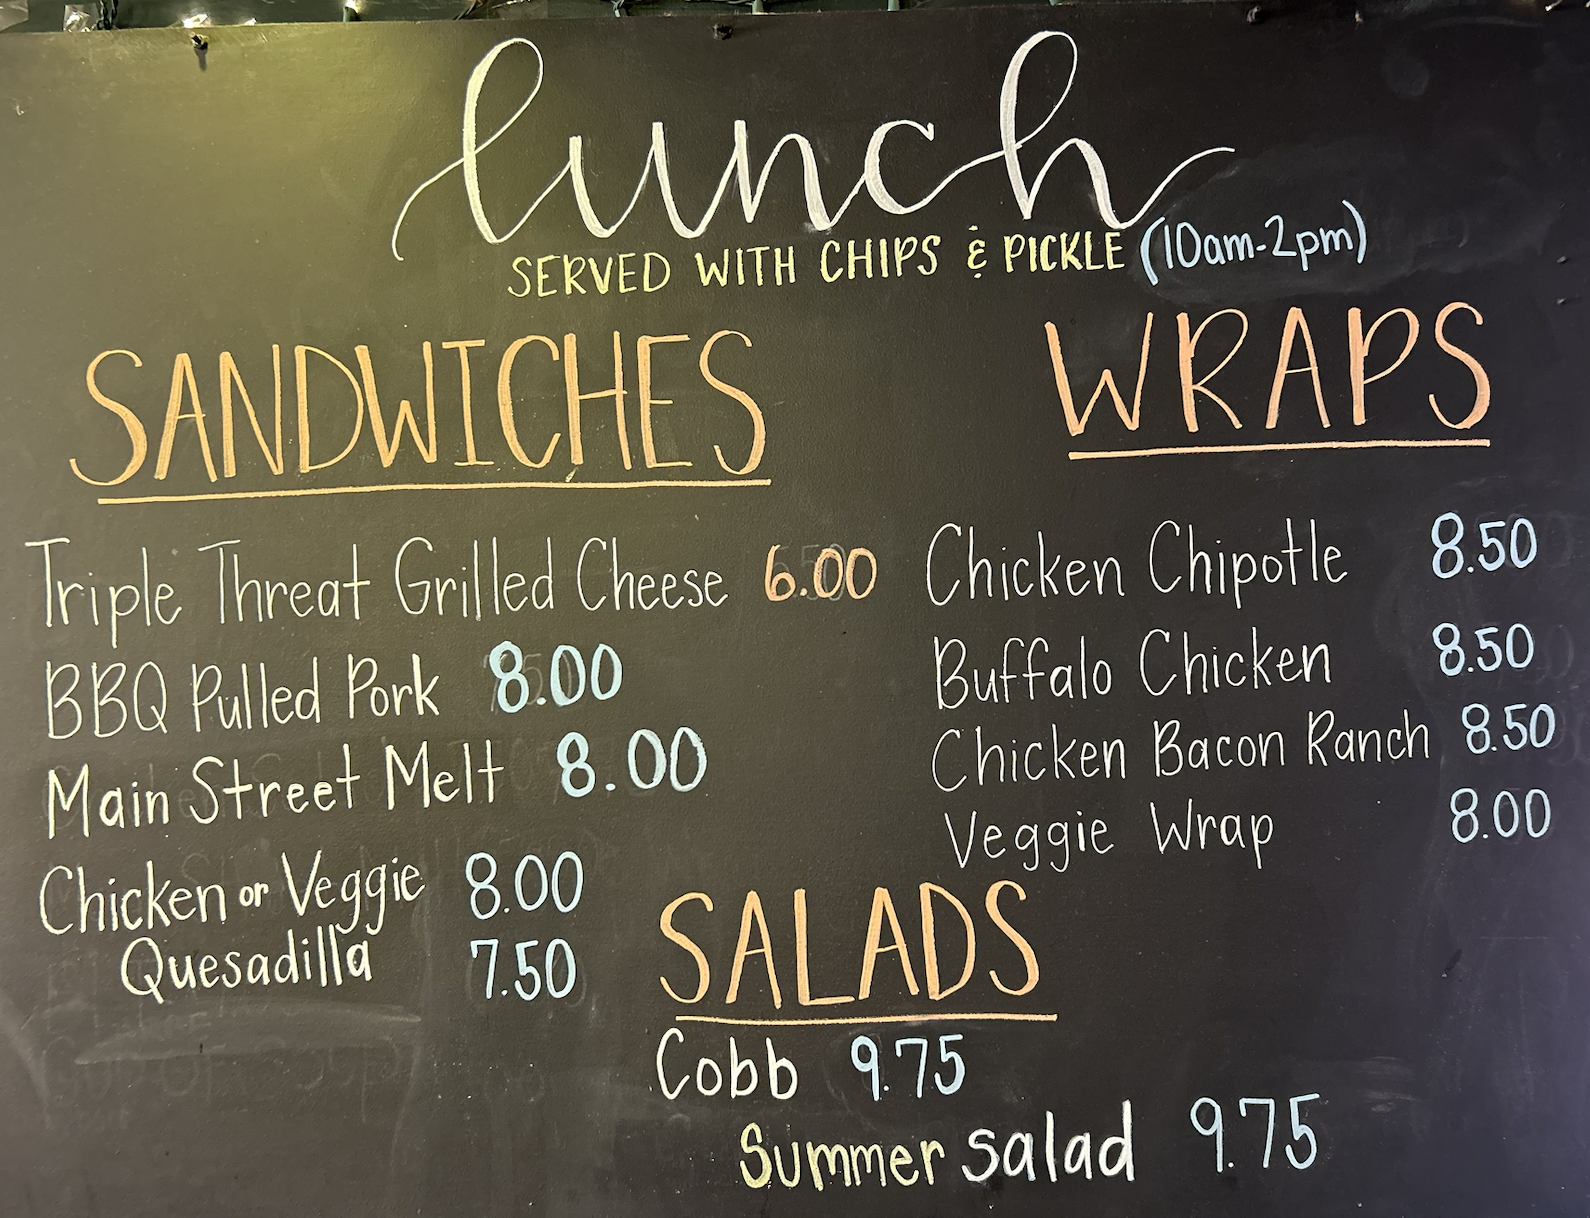 lunch
SERVED WITH CHIPS & PICKLE (10am-2pm)
SANDWICHES
Triple Threat Grilled Cheese 6.00
BBQ Pulled Pork 8.00
Main Street Melt 8.00
Chicken or Veggie 8.00
Quesadilla 7.50
WRAPS
Chicken Chipotle 8.50
Buffalo Chicken 8.50
Chicken Bacon Ranch 8.50
Veggie Wrap 8.00
SALADS
Cobb 9.75
Summer salad 9.75